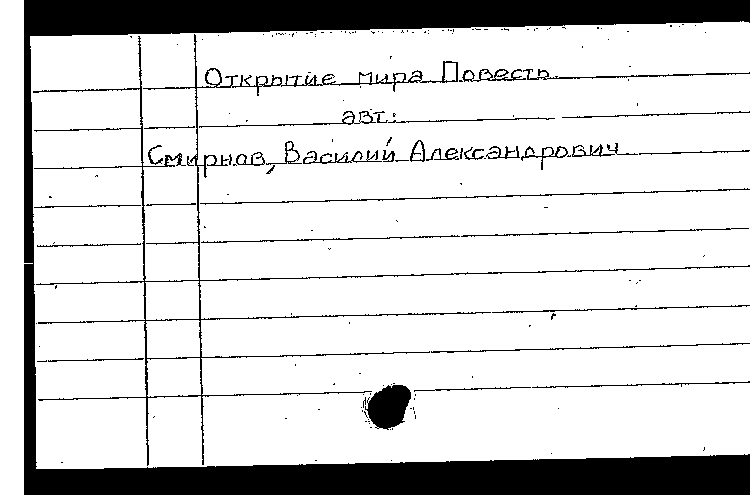 Открытие мира Повесть
авт:
Смирнов, Василий Александрович